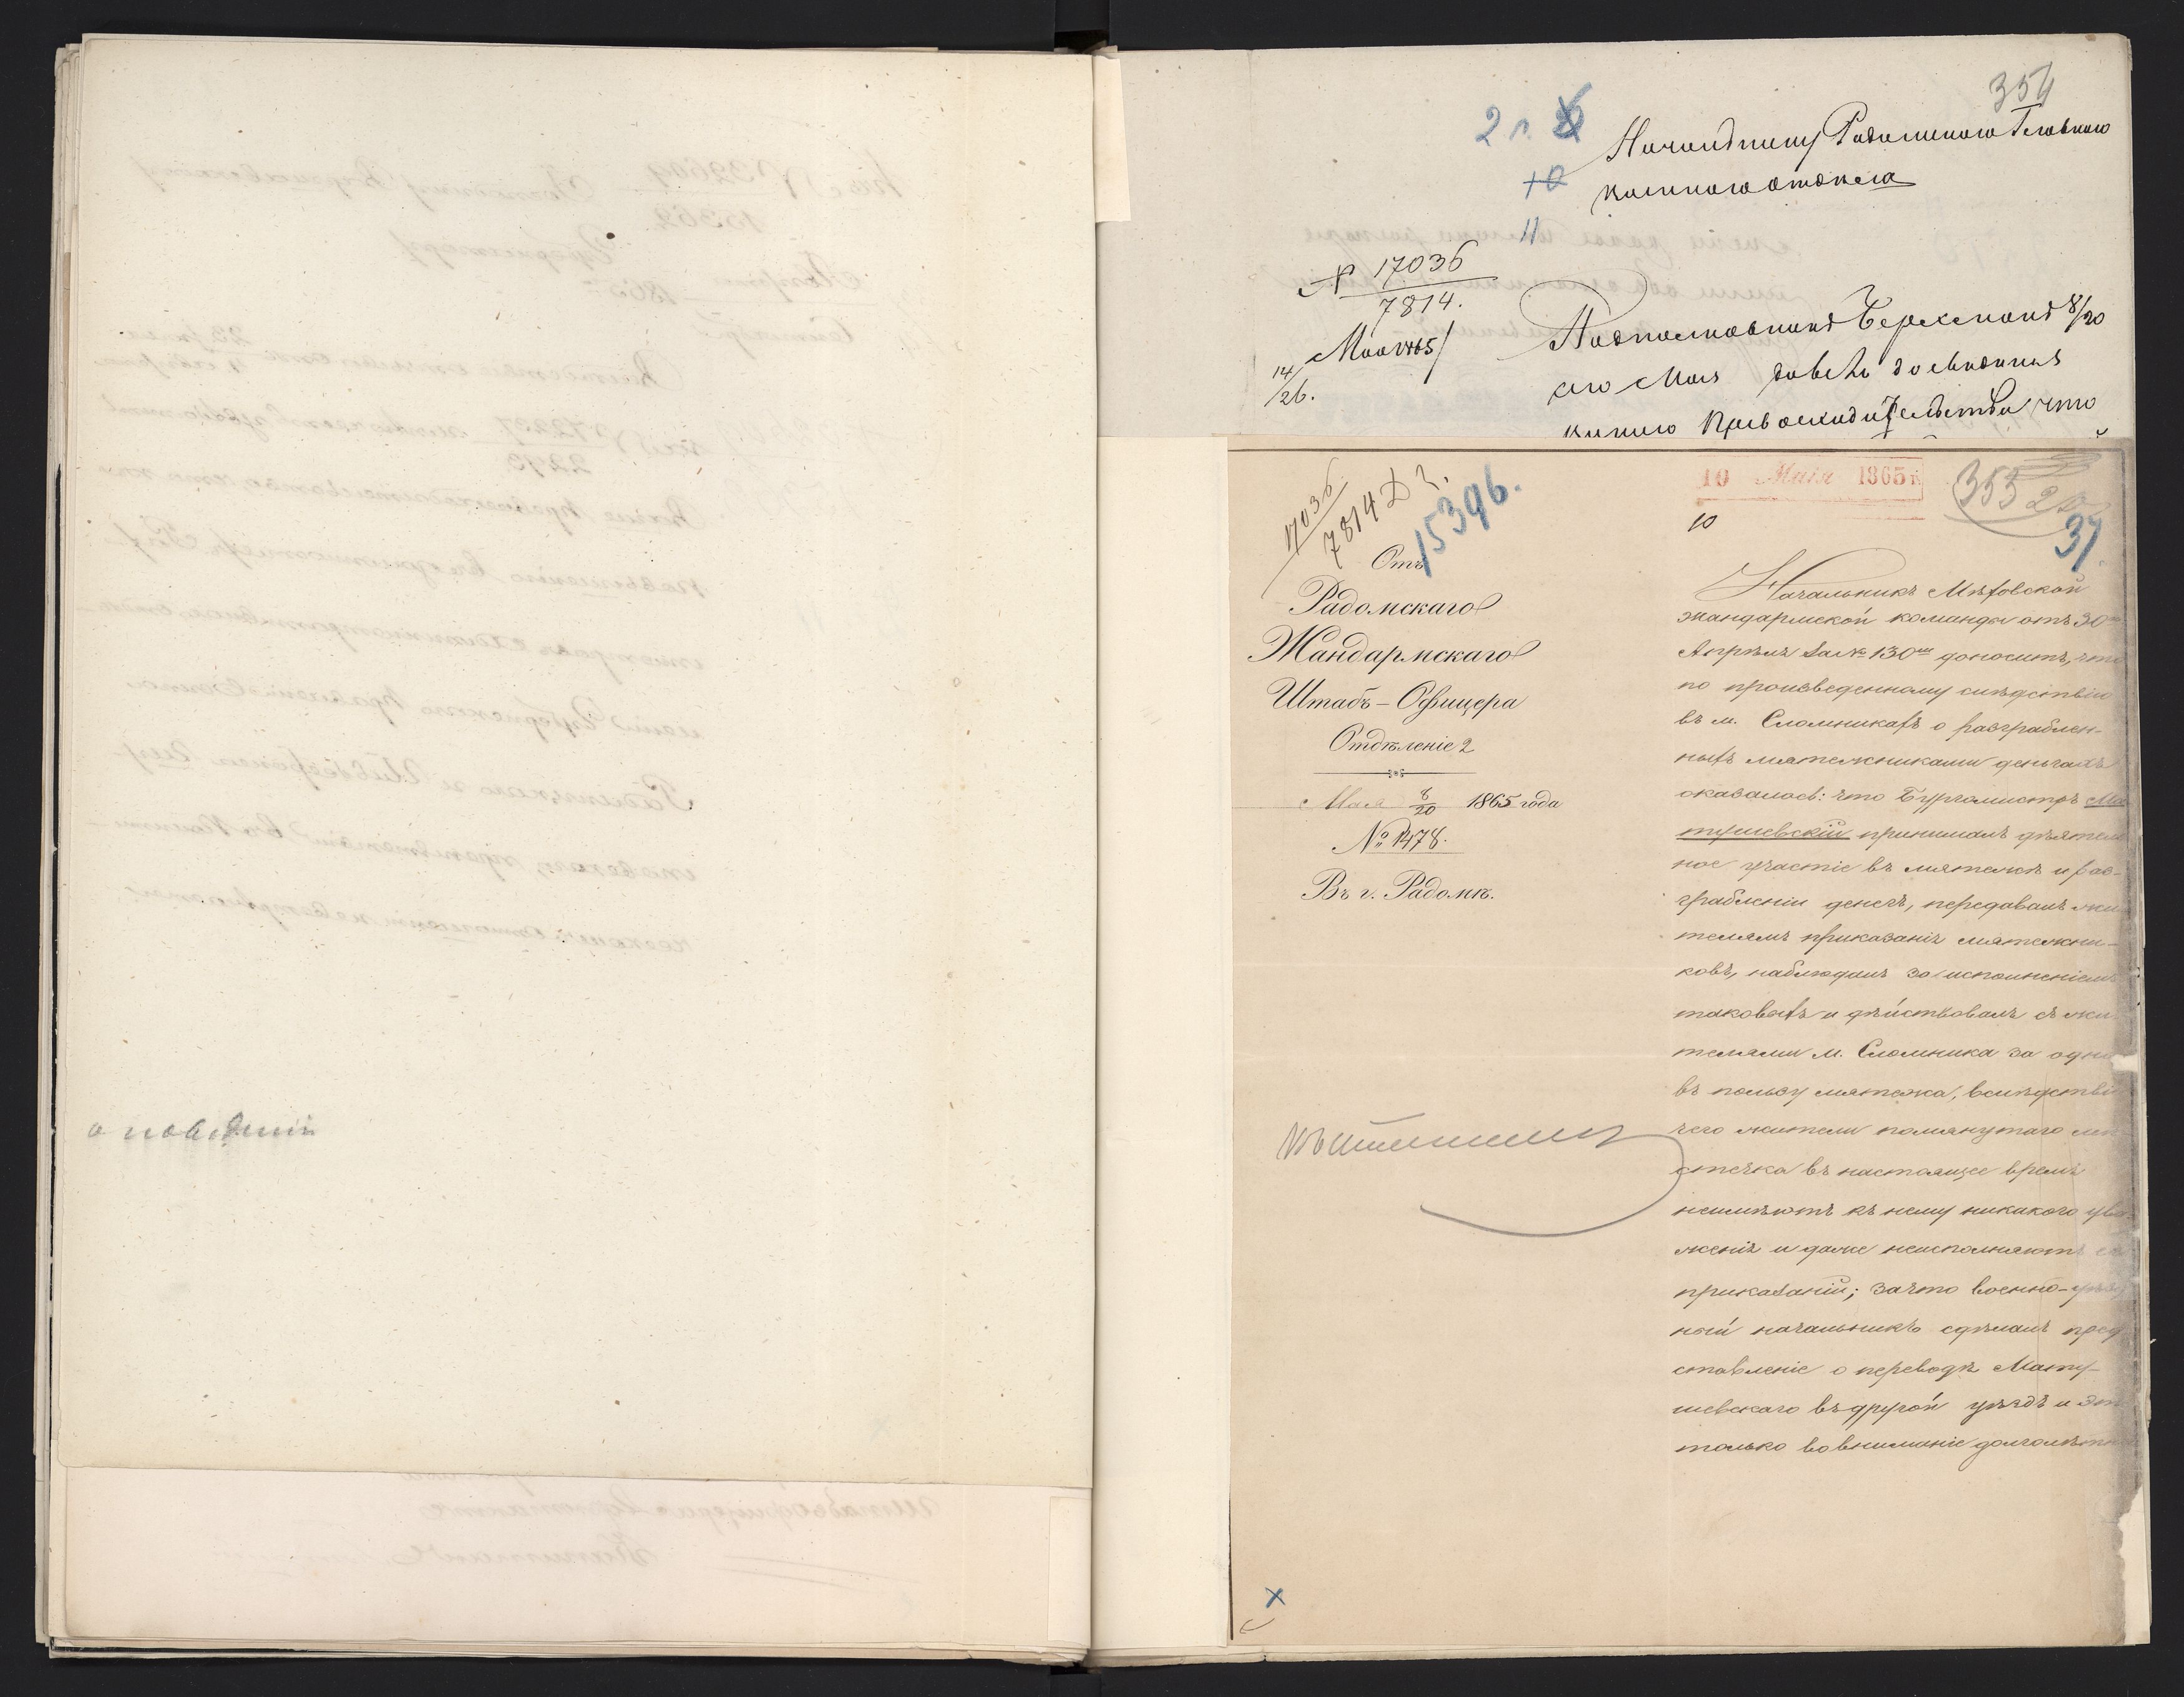 о поведеніи
354
2 п.
10
11
Начальнику Радомскаго Главнаго
военнаго отдѣла
№ 17036
7814.
14/26. Мая 1865
Подполковникъ 8/20
сего Мая довелъ до свѣдѣнія
Вашего Превосходительства что
17036
7814
15396.
10 Мая 1865 г.
10
353
37
Отъ
Радомскаго
Жандармскаго
Штабъ-Офицера
Отдѣленіе 2
Мая 8/20 1865 года
№ 1478.
Въ г. Радомѣ.
Начальникъ Мѣховской
жандармской команды отъ 30го
Апрѣля за № 130мъ доноситъ, что
по произведенному слѣдствію
въ м. Сломникахъ о разграблен-
ныхъ мятежниками деньгахъ
оказалось: что Бургомистръ Ма-
тушевскій принималъ дѣятель
ное участіе въ мятежѣ и раз-
грабленіи денегъ, передавалъ жи
телямъ приказанія мятежни-
ковъ, наблюдалъ за исполненіемъ
таковыхъ и дѣйствовалъ съ жи
телями м. Сломника за одно
въ пользу мятежа, вслѣдствіе
чего жители помянутаго мѣ
стечка въ настоящее время
неимѣютъ къ нему никакого ува-
женія и даже неисполняютъ его
приказаній; за что военно-уѣзд
ный начальникъ сдѣлалъ пред
ставленіе о переводѣ Мату-
шевскаго въ другой уѣздъ и это
только во вниманіе долголѣтн